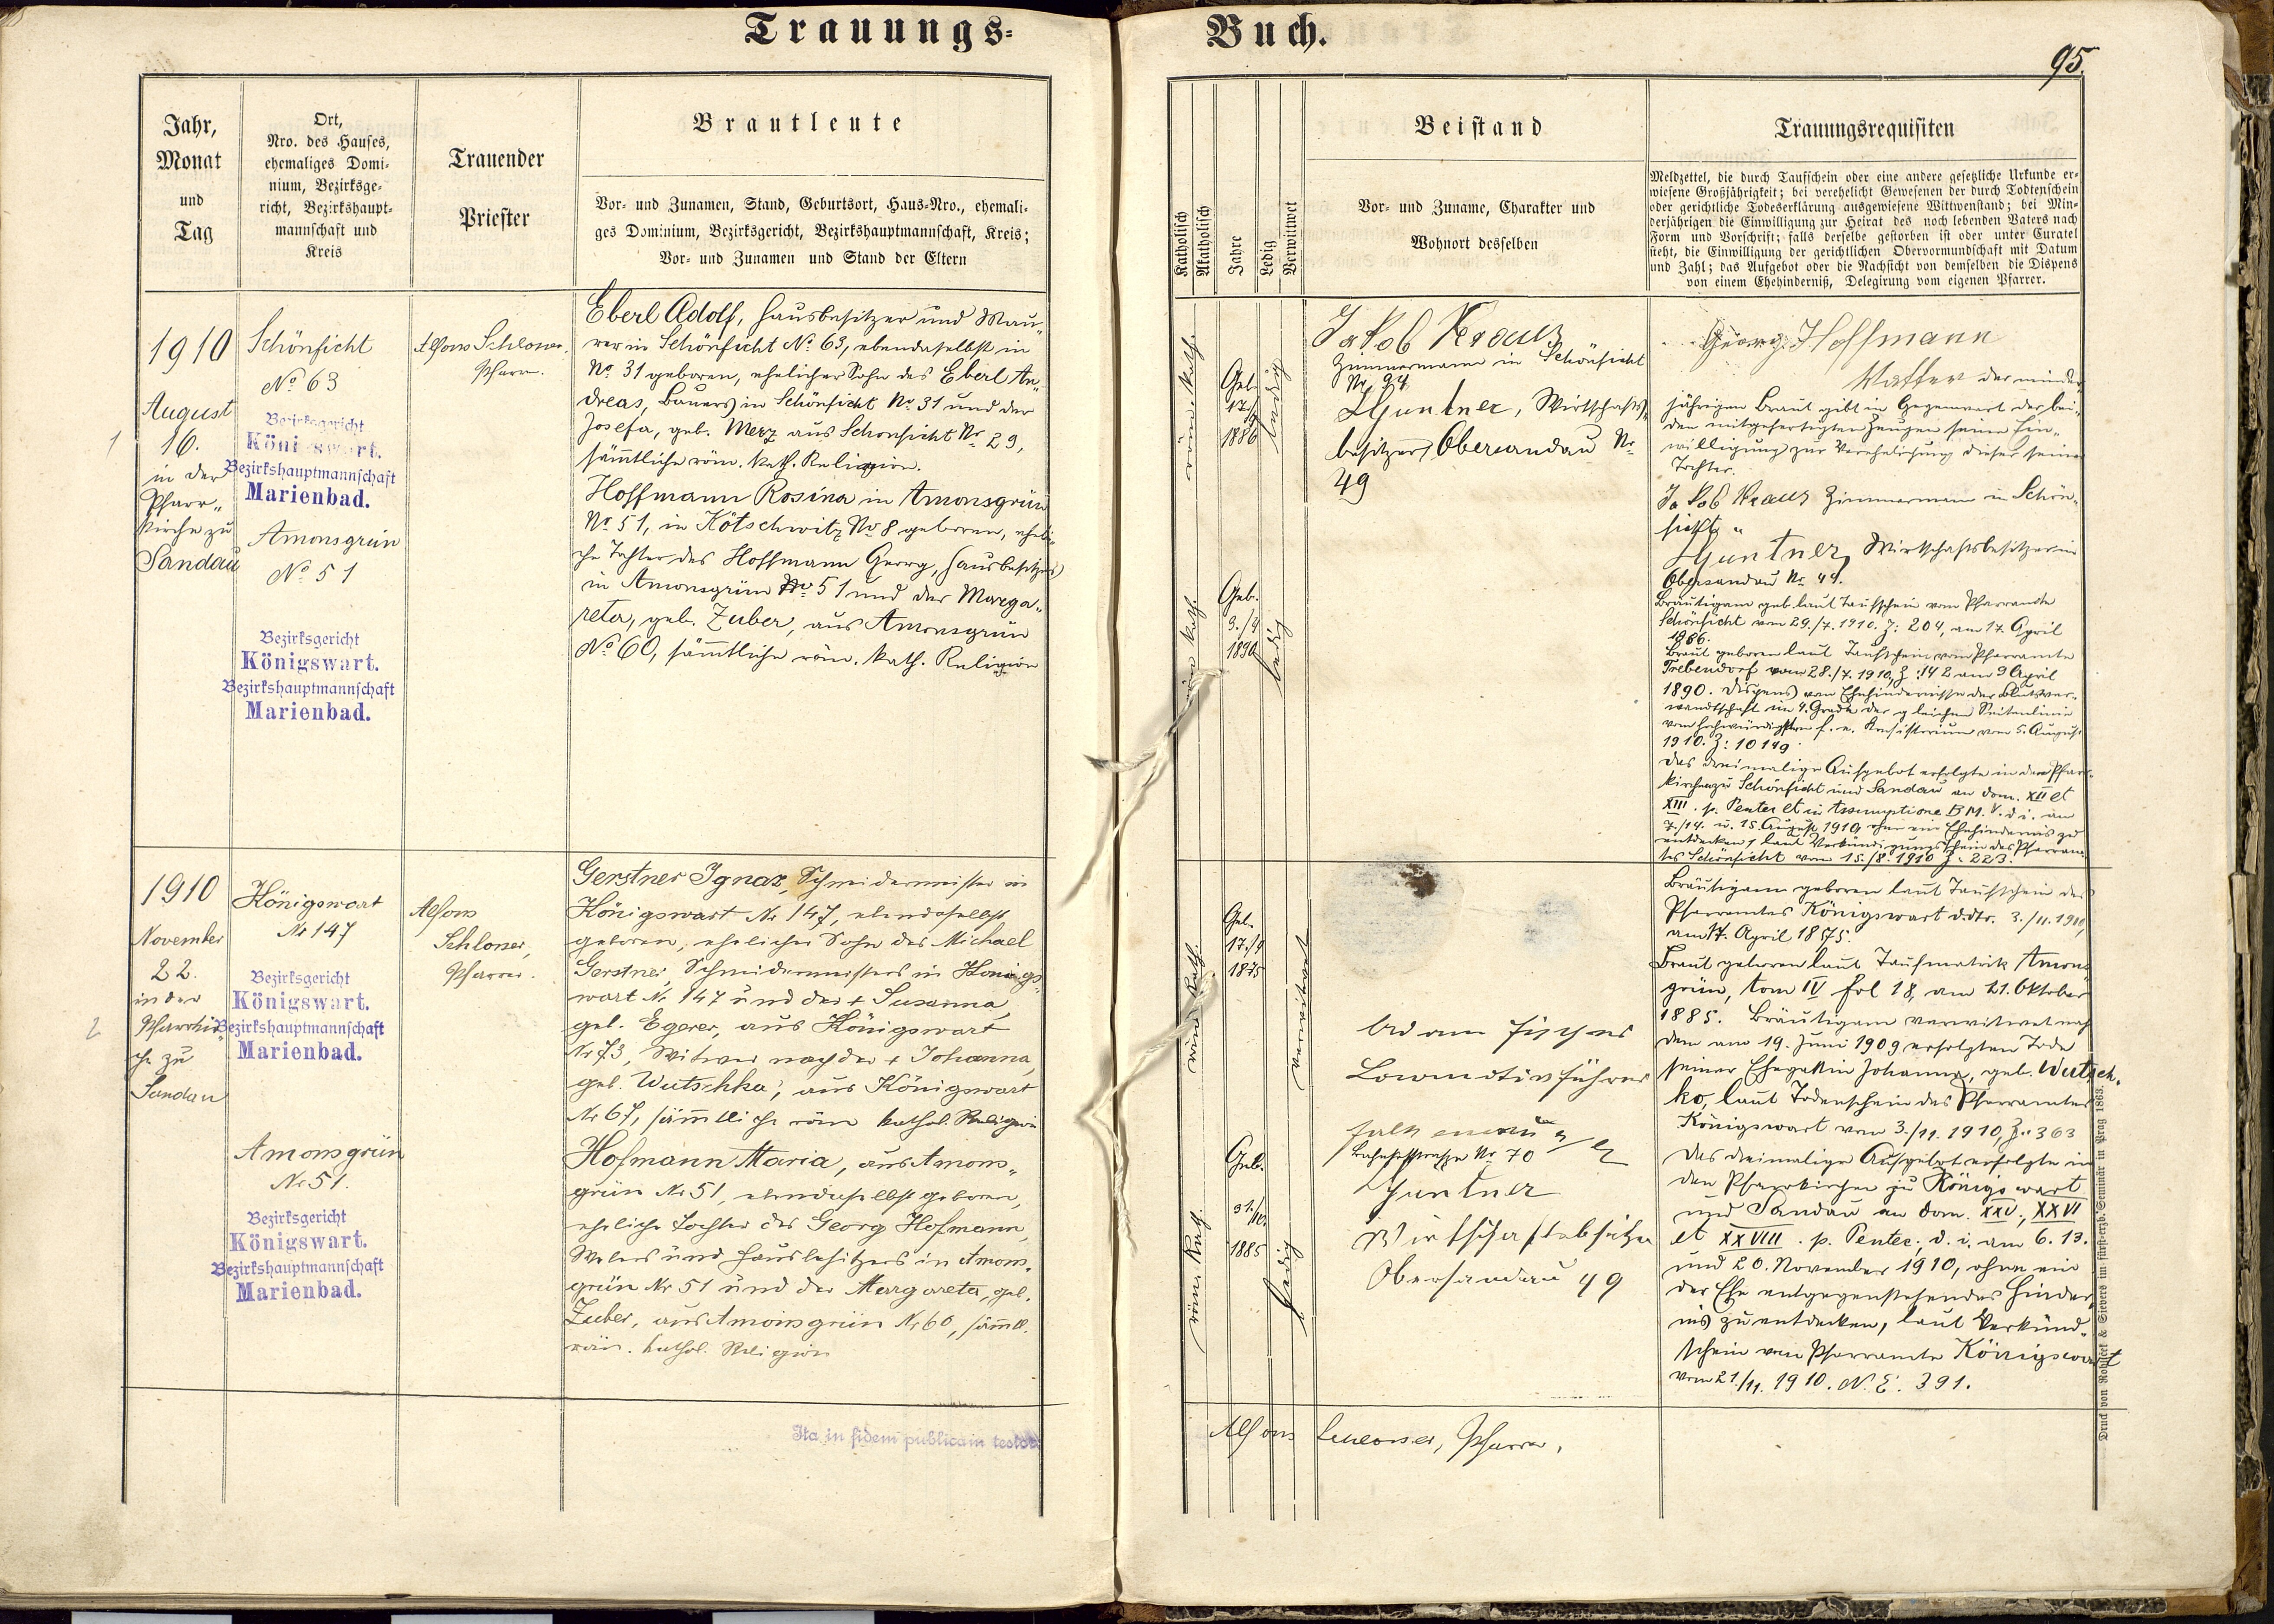 Trauungs=
Buch.
95.
Jahr,
Monat
und
Tag
Ort,
Nro. des Hauses,
ehemaliges Domi-
nium, Bezirksge-
richt, Bezirkshaupt-
mannschaft und
Kreis
Trauender
Priester
Brautleute
Vor- und Zunamen, Stand, Geburtsort, Haus-Nro., ehemali-
ges Dominium, Bezirksgericht, Bezirkshauptmannschaft, Kreis;
Vor- und Zunamen und Stand der Eltern
Katholisch
Akatholisch
Jahre
Ledig
Verwitwet
Beistand
Vor- und Zuname, Charakter und
Wohnort desselben
Trauungsrequisiten
Meldzettel, die durch Taufschein oder eine andere gesetzliche Urkunde er-
wiesene Großjährigkeit; bei verehelicht Gewesenen der durch Todtenschein
oder gerichtliche Todeserklärung ausgewiesene Wittwenstand; bei Min-
derjährigen die Einwilligung zur Heirat des noch lebenden Vaters nach
Form und Vorschrift; falls derselbe gestorben ist oder unter Curatel
steht, die Einwilligung der gerichtlichen Obervormundschaft mit Datum
und Zahl; das Aufgebot oder die Nachsicht von demselben die Dispens
von einem Ehehinderniß, Delegirung vom eigenen Pfarrer.
1
1910
August
16.
in der
Pfarr„
kirche zu
Sandau
Schönficht
No 63
Bezirksgericht
Königswart.
Bezirkshauptmannschaft
Marienbad.
Amonsgrün
No 51
Bezirksgericht
Königswart.
Bezirkshauptmannschaft
Marienbad.
Alfons Schloser,
Pfarrer.
Eberl Adolf, Hausbesitzer und Mau„
rer in Schönficht No 63, ebendaselbst in
No 31 geboren, ehelicher Sohn des Eberl An„
dreas, Bauers in Schönficht No 31 und der
Josefa, geb. Merz aus Schönficht Nr 29,
sämtliche röm. kath. Religion.
Hoffmann Rosina in Amonsgrün
No 51, in Kötschwitz No 8 geboren, eheli„
che Tochter des Hoffmann Georg, Hausbesitzers
in Amonsgrün No 51 und der Marga„
reta, geb. Zuber, aus Amonsgrün
No 60, sämtliche röm. kath. Religion
röm. kath.
Geb.
17./4
1886
ledig
röm. kath.
Geb.
9./4
1890
ledig
Jakob Kraus
Zimmermann in Schönficht
Nr. 94
Guntner, Wirtschafts„
besitzer Obersandau Nr
49
Georg Hoffmann
Vatter der minder
jährigen Braut gibt in Gegenwart der bei„
den mitgefertigten Zeugen seine Ein„
willigung zur Verehelichung dieser seiner
Tochter.
Jakob Kraus Zimmermann in Schön„
ficht
Guntner, Wirtschaftsbesitzer in
Obersandau Nr 49.
Bräutigam geb. laut Taufschein vom Pfarramte
Schönficht vom 29./7. 1910. Z: 204, am 17. April
1886.
Braut geboren laut Taufschein vom Pfarramte
Trebendorf vom 28./7. 1910, Z: 142 am 9 April
1890. Dispens vom Ehehindernisse der Blutsver„
wandtschaft im 4. Grade der gleichen Seitenlinie
vom hochwürdigsten f. e. Konsistorium vom 5. August
1910. Z: 10149
Das dreimalige Aufgebot erfolgte in den Pfarr„
kirchen zu Schönficht und Sandau an dom. XII et
XIII. p. Pentec et in Assumptione B.M.V. d. i. am
7./14. u. 15. August 1910, ohne ein Ehehindernis zu
entdecken, laut Verkündigungsschein des Pfarram„
tes Schönficht vom 15./8. 1910 Z: 223.
2
1910
November
22.
in der
Pfarrkir„
che zu
Sandau
Königswart
Nr 147
Bezirksgericht
Königswart.
Bezirkshauptmannschaft
Marienbad.
Amonsgrün
Nr 51.
Bezirksgericht
Königswart.
Bezirkshauptmannschaft
Marienbad.
Alfons
Schloser,
Pfarrer.
Gerstner Ignaz, Schneidermeister in
Königswart Nr 147, ebendaselbst
geboren, ehelicher Sohn des Michael
Gerstner, Schneidermeisters in Königs„
wart Nr 147 und der + Susanna,
geb. Egerer, aus Königswart
Nr 73, Witwer nach der + Johanna,
geb. Wutschka, aus Königswart
Nr 67, sämmtliche röm kathol. Religion
Hofmann Maria, aus Amons„
grün Nr 51, ebendaselbst geboren,
eheliche Tochter des Georg Hofmann,
Webers und Hausbesitzers in Amons„
grün Nr 51 und der Margareta, geb.
Zuber, aus Amonsgrün Nr 60, sämtl.
röm. kathol. Religion
röm. kath.
Geb.
17./4
1875
verwitwet
röm. kath.
Geb.
21./10.
1885
ledig
Adam Fischer
Locomotivführer
Falkenau a/Eg
Bahnhofstrasse Nr 70
Guntner
Wirtschaftsbsitzer
Obersandau 49
Bräutigam geboren laut Taufschein des
Pfarramtes Königswart ddto. 3./11. 1910,
am 17. April 1875.
Braut geboren laut Taufmatrik Amons„
grün, tom IV fol 18, am 21. Oktober
1885. Bräutigam verwitwet nach
dem am 19. Juni 1909 erfolgten Tode
seiner Ehegattin Johanna, geb. Wutsch„
ko, laut Todenschein des Pfarramtes
Königswart vom 3./11. 1910, Z: 363
Das dreimalige Aufgebot erfolgte in
den Pfarrkirchen zu Königswart
und Sandau an dom. XXV, XXVI
et XXVIII. p. Pentec., d. i. am 6. 13.
und 20. November 1910, ohne ein
der Ehe entgegenstehendes Hinder„
nis zu entdecken, laut Verkünd„
schein vom Pfarramte Königswart
vom 21./11. 1910. N.E. 391.
Ita in fidem publicam testor:
Alfons Schloser, Pfarrer.
Druck von Rohliček & Sievers im fürst-erzb. Seminär in Prag 1863.